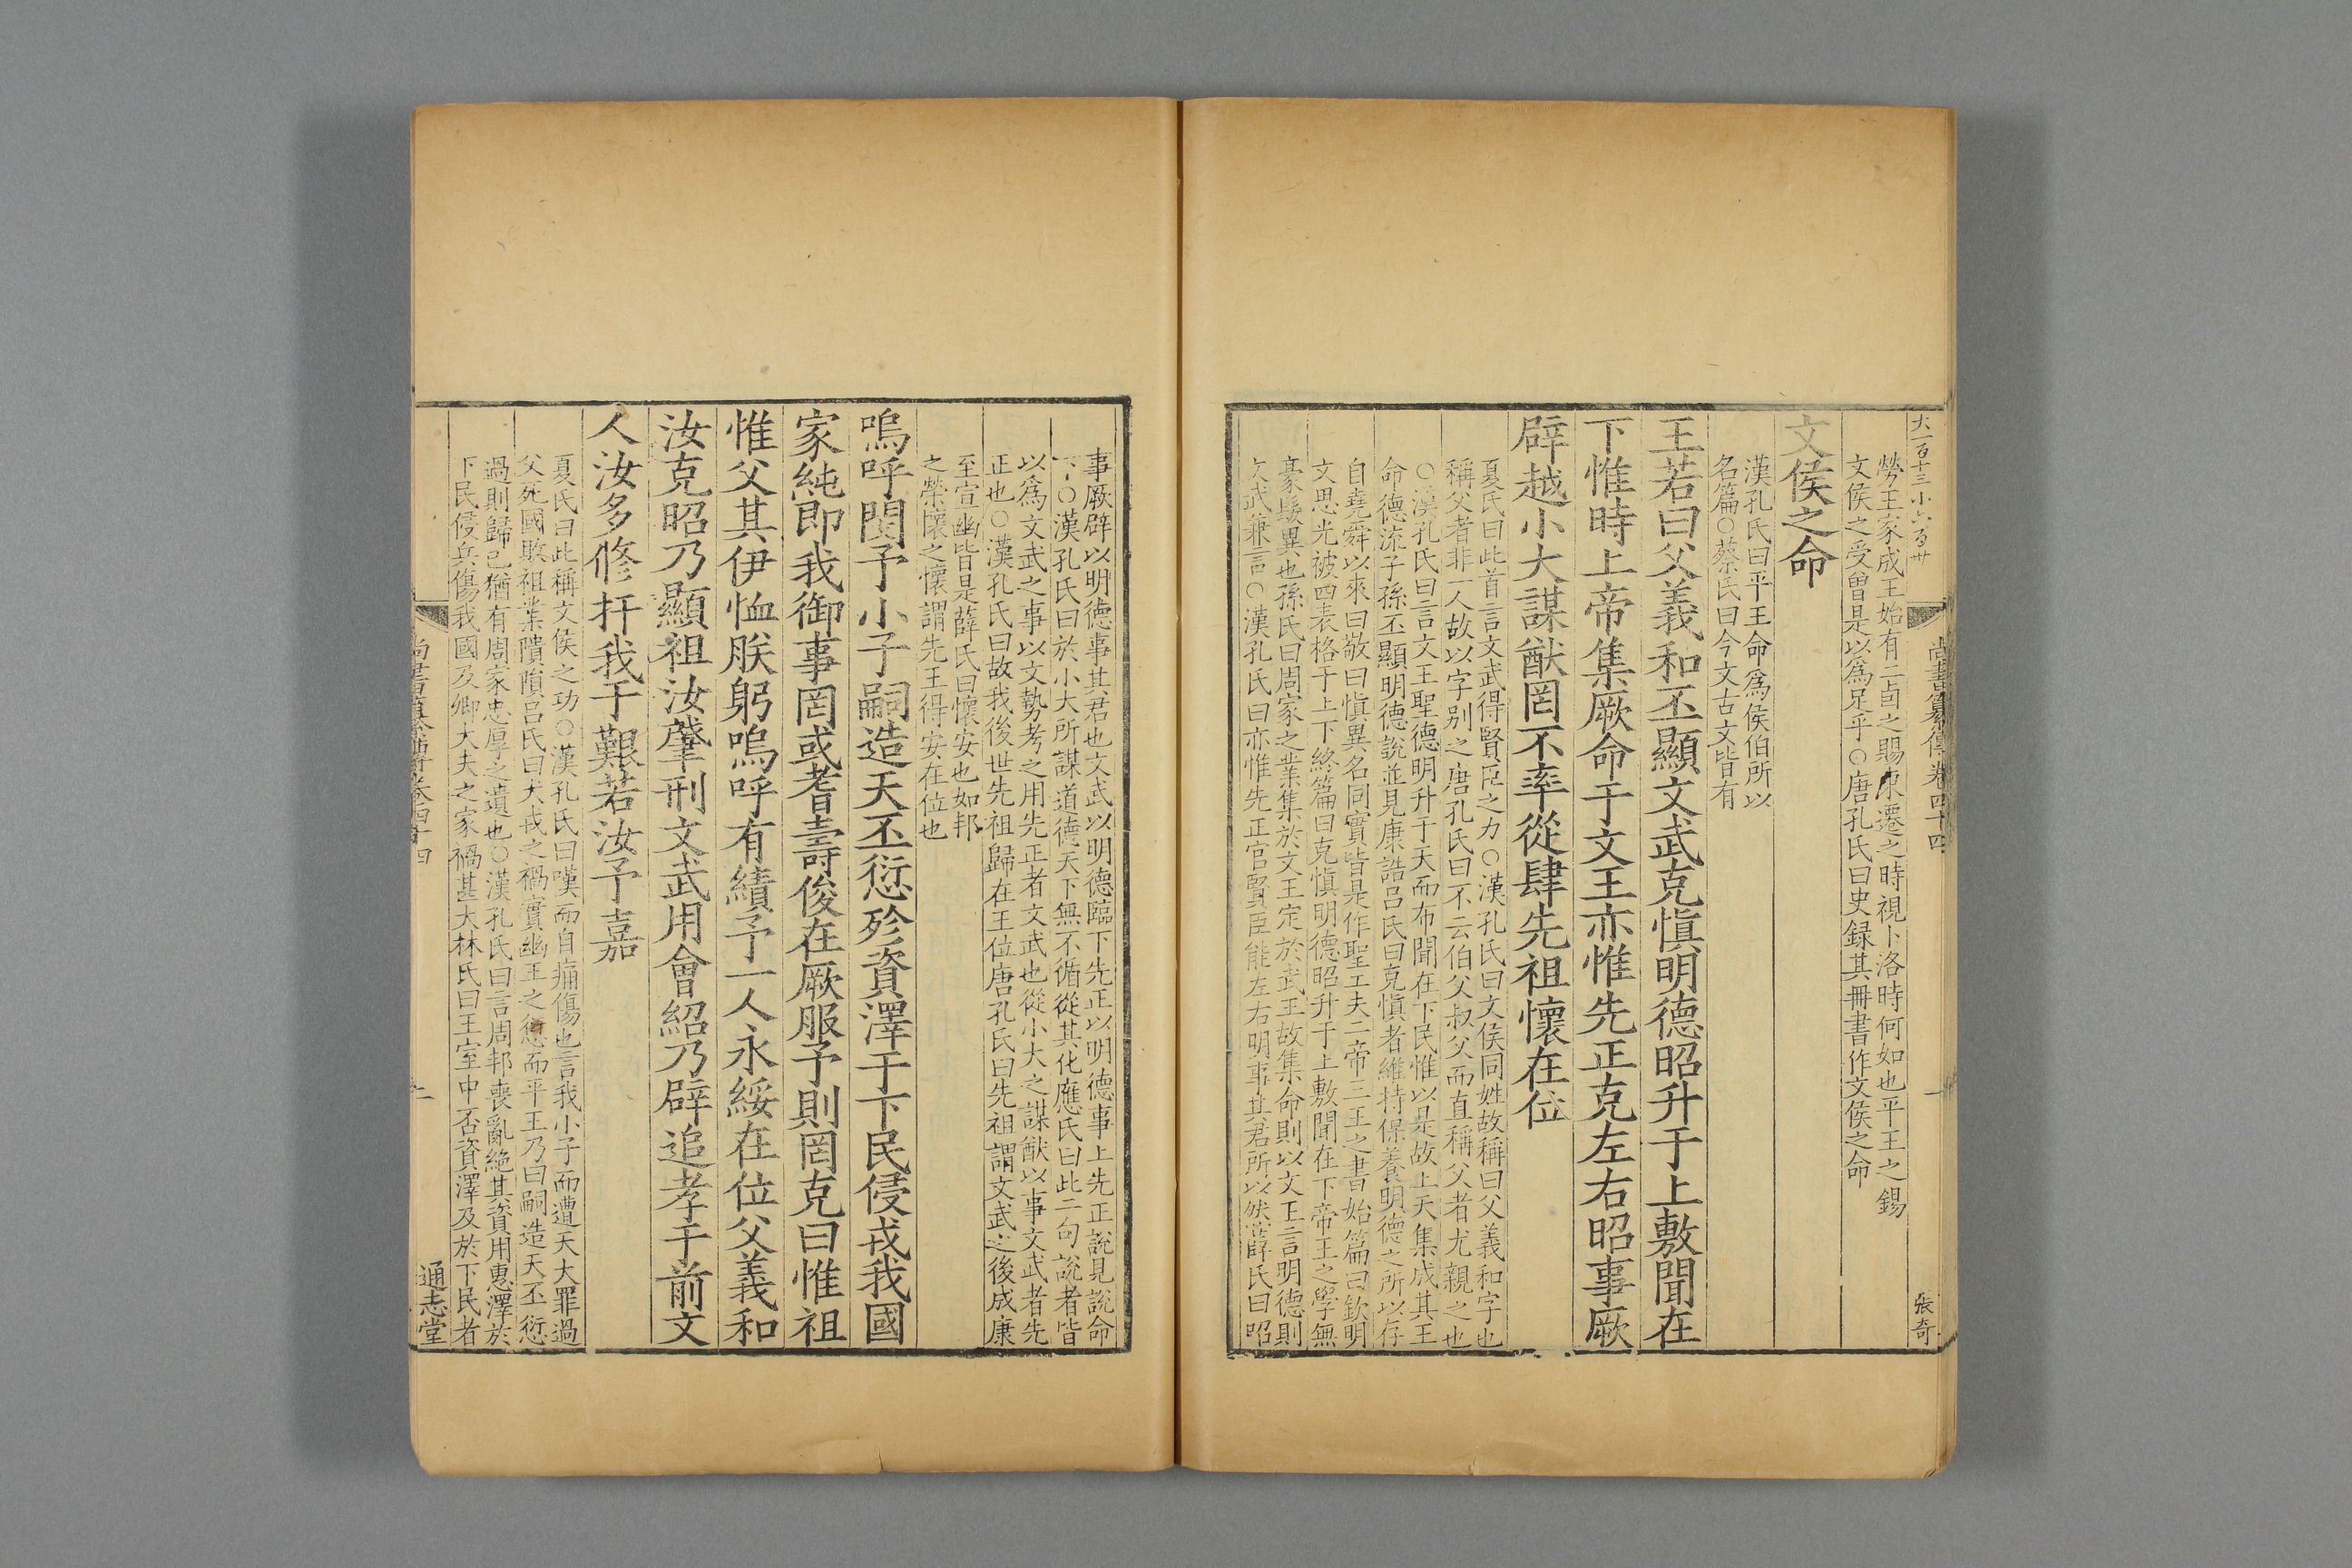 大一百十三小六百卅
尚書纂傳卷四十四
一
張奇
勞王家成王始有二卣之賜東遷之時視卜洛時何如也平王之錫
文侯之受曾是以爲足乎○唐孔氏曰史録其冊書作文侯之命
文侯之命
漢孔氏曰平王命爲侯伯所以
名篇○蔡氏曰今文古文皆有
王若曰父義和丕顯文武克愼明德昭升于上敷聞在
下惟時上帝集厥命于文王亦惟先正克左右昭事厥
辟越小大謀猷罔不率從肆先祖懷在位
夏氏曰此首言文武得賢臣之力○漢孔氏曰文侯同姓故稱曰父義和字也
稱父者非一人故以字别之唐孔氏曰不云伯父叔父而直稱父者尤親之也
○漢孔氏曰言文王聖德明升于天而布聞在下民惟以是故上天集成其王
命德流子孫丕顯明德說並見康誥呂氏曰克愼者維持保養明德之所以存
自堯舜以來曰敬曰愼異名同實皆是作聖工夫二帝三王之書始篇曰欽明
文思光被四表格于上下終篇曰克愼明德昭升于上敷聞在下帝王之學無
毫髮異也孫氏曰周家之業集於文王定於武王故集命則以文王言明德則
文武兼言○漢孔氏曰亦惟先正官賢臣能左右明事其君所以然薛氏曰昭
事厥辟以明德事其君也文武以明德臨下先正以明德事上先正說見說命
下○漢孔氏曰於小大所謀道德天下無不循從其化應氏曰此二句說者皆
以爲文武之事以文勢考之用先正者文武也從小大之謀猷以事文武者先
正也○漢孔氏曰故我後世先祖歸在王位唐孔氏曰先祖謂文武之後成康
至宣幽皆是薛氏曰懷安也如邦
之榮懷之懷謂先王得安在位也
嗚呼閔予小子嗣造天丕愆殄資澤于下民侵戎我國
家純即我御事罔或耆壽俊在厥服予則罔克曰惟祖
惟父其伊恤朕躬嗚呼有績予一人永綏在位父義和
汝克昭乃顯祖汝肇刑文武用會紹乃辟追孝于前文
人汝多修扞我于艱若汝予嘉
夏氏曰此稱文侯之功○漢孔氏曰嘆而自痛傷也言我小子而遭天大罪過
父死國敗祖業隤隕呂氏曰犬戎之禍實幽王之愆而平王乃曰嗣造天丕愆
過則歸己猶有周家忠厚之遺也○漢孔氏曰言周邦喪亂絶其資用惠澤於
下民侵兵傷我國及卿大夫之家禍甚大林氏曰王室中否資澤及於下民者
尚書纂傳卷四十四
二
通志堂